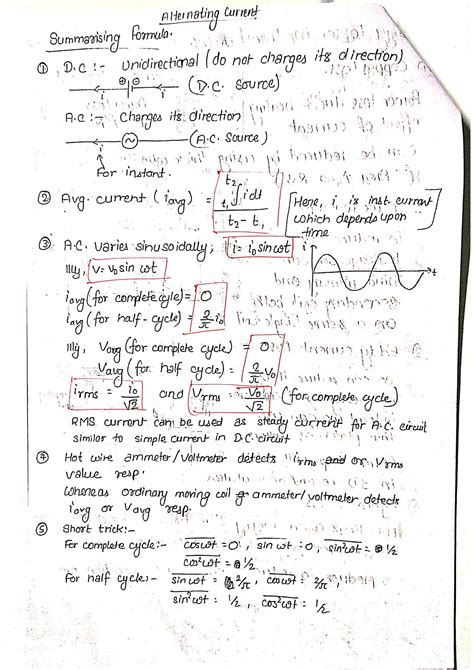 Alternating Current
Summarising Formula.
① D.C :- Unidirectional (do not changes its direction)
⊕ ⊖
i
(D.C. Source)
A.C :- Changes its direction
~ (A.C. Source)
i
For instant.
② Avg. current (iavg) = ∫t₁^t₂ i dt / t₂ - t₁ [Here, i is inst. current which depends upon time]
③ A.C. varies sinusoidally, i = i₀ sin ωt
i
t
|||ly, V = V₀ sin ωt
iavg (for complete cycle) = 0
iavg (for half-cycle) = 2/π i₀
|||ly, Vavg (for complete cycle) = 0
Vavg (for half cycle) = 2/π V₀
irms = i₀/√2 and Vrms = V₀/√2 (for complete cycle)
RMS current can be used as steady current for A.C. circuit
similar to simple current in D.C. circuit
④ Hot wire ammeter/voltmeter detects irms or Vrms
value resp.
Whereas ordinary moving coil ammeter/voltmeter detects
iavg or Vavg resp.
⑤ Short trick:-
For complete cycle:- \overline{cos ωt} = 0, \overline{sin ωt} = 0, \overline{sin²ωt} = 1/2
\overline{cos²ωt} = 1/2
For half cycle:- \overline{sin ωt} = 2/π, \overline{cos ωt} = 2/π,
\overline{sin²ωt} = 1/2, \overline{cos²ωt} = 1/2